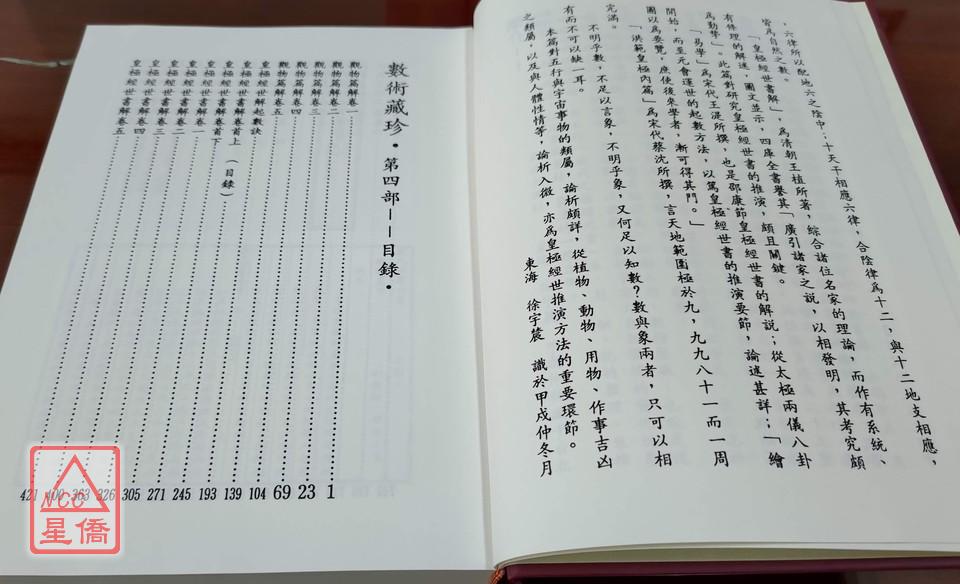 ，六律所以配地六之陰中；十天干相應六律，合陰律為十二，與十二地支相應，
皆為自然之數。
「皇極經世書解」，為清朝王植所著，綜合諸位名家的理論，而作有系統、
有條理的解述，圖文並示，四庫全書譽其「廣引諸家之說，以相發明，其考究頗
為勤摯」。此篇對研究皇極經世書的推演，頗且關鍵。
「易學」為宋代王湜所撰，也是邵康節皇極經世書的解說；從太極兩儀八卦
開始，而至元會運世的起數方法，以篤皇極經世書的推演要節，論述甚詳；「繪
圖以為要覽，庶使後來學者，漸可得其門。」
「洪範皇極內篇」為宋代蔡沈所撰，言天地範圍極於九，九九八十一而一周
完滿。
不明乎數，不足以言象，不明乎象，又何足以知數？數與象兩者，只可以相
有而不可以缺一耳。
本篇對五行與宇宙事物的類屬，論析頗詳，從植物、動物、用物、作事吉凶
之類屬，以及與人體性情等，論析入微，亦為皇極經世推演方法的重要環節。
東海 徐宇辳 識於甲戌仲冬月
數術藏珍・第四部——目錄・
觀物篇解卷一 1
觀物篇解卷二 23
觀物篇解卷三 69
觀物篇解卷四 104
觀物篇解卷五 139
皇極經世解起數訣 193
皇極經世書解卷首上（目錄）
皇極經世書解卷首下 245
皇極經世書解卷一 271
皇極經世書解卷二 305
皇極經世書解卷三 326
皇極經世書解卷四
皇極經世書解卷五 421
NCC
星僑